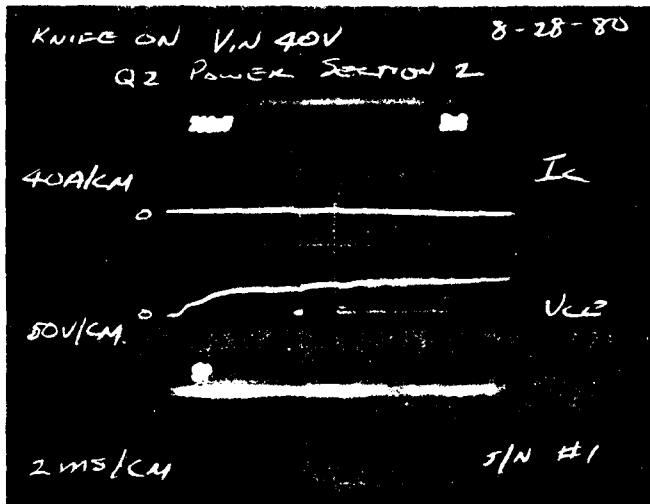 KNIFE ON VIN 40V
8-28-80
Q2 POWER SECTION 2
40A/CM
Ic
0
0
50V/CM.
VCE
2 ms/CM
S/N #1